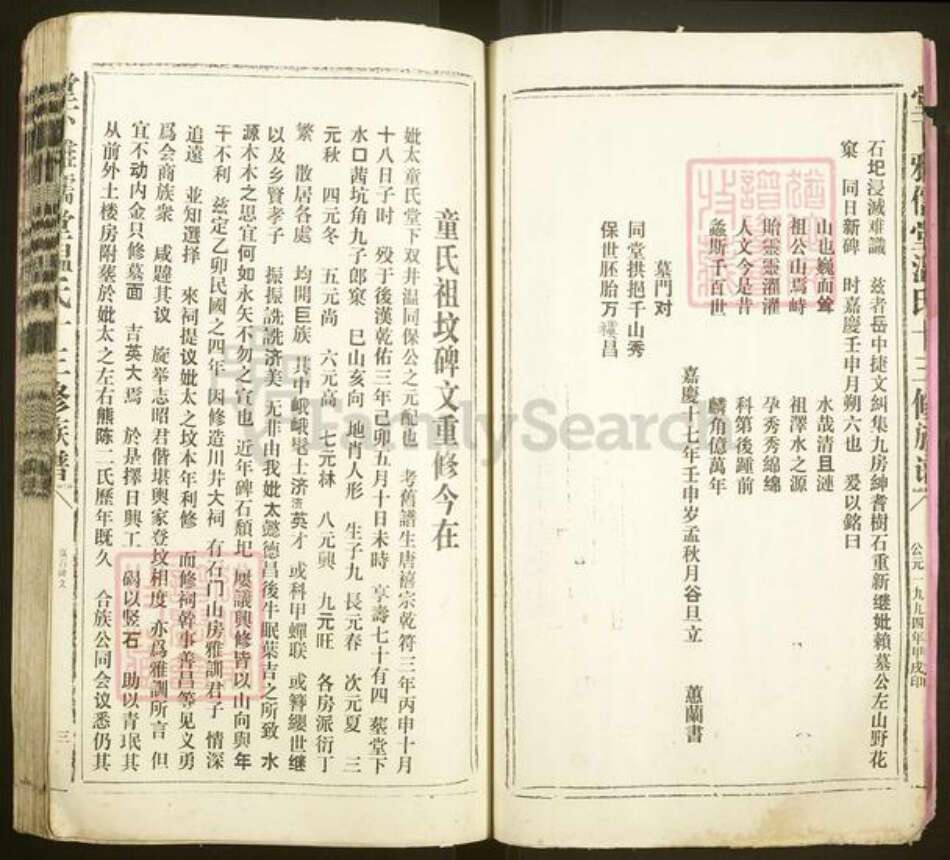 石圯浸滅难識 兹者岳中捷文糾集九房紳耆樹石重新继妣賴墓公左山野花
窠 同日新碑 时嘉慶壬申月朔六也 爰以銘曰
山也巍而耸 水哉清且漣
祖公山焉峙 祖澤水之源
貽靈靈濯濯 孕秀秀綿綿
人文今是昔 科第後踵前
螽斯千百世 麟角億萬年
嘉慶十七年壬申岁孟秋月谷旦立 蕙蘭書
墓門对
同堂拱挹千山秀
保世胚胎万禩昌
公元一九九四年甲戌印
童氏祖坟碑文重修今在
妣太童氏堂下双井温同保公之元配也 考舊譜生唐禧宗乾符三年丙申十月
十八日子时 殁于後漢乾佑三年己卯五月十日未時 享壽七十有四 塟堂下
水口茜坑角九子郎窠 巳山亥向 地肖人形 生子九 長元春 次元夏 三
元秋 四元冬 五元尚 六元高 七元林 八元興 九元旺 各房派衍丁
繁 散居各處 均開巨族 其中峨峨髦士济济英才 或科甲蟬联 或簪纓世继
以及乡賢孝子 振振詵詵济美 无非由我妣太懿德昌後牛眠葉吉之所致 水
源木木之思宜何如永矢不勿之宣也 近年碑石頹圯 屡議興修皆以山向與年
干不利 兹定乙卯民國之四年 因修造川井大祠 有石门山房雅訓君子 情深
追遠 並知選择 來祠提议妣太之坟本年利修 而修祠幹事善昌等见义勇
爲会商族衆 咸韙其议 旋举志昭君偕堪輿家登坟相度 亦爲雅訓所言 但
宜不动内金只修墓面 吉英大焉 於是擇日興工 碣以竖石 助以青珉其
从前外土楼房附塟於妣太之左右熊陈二氏歷年既久 合族公同会议悉仍其
三